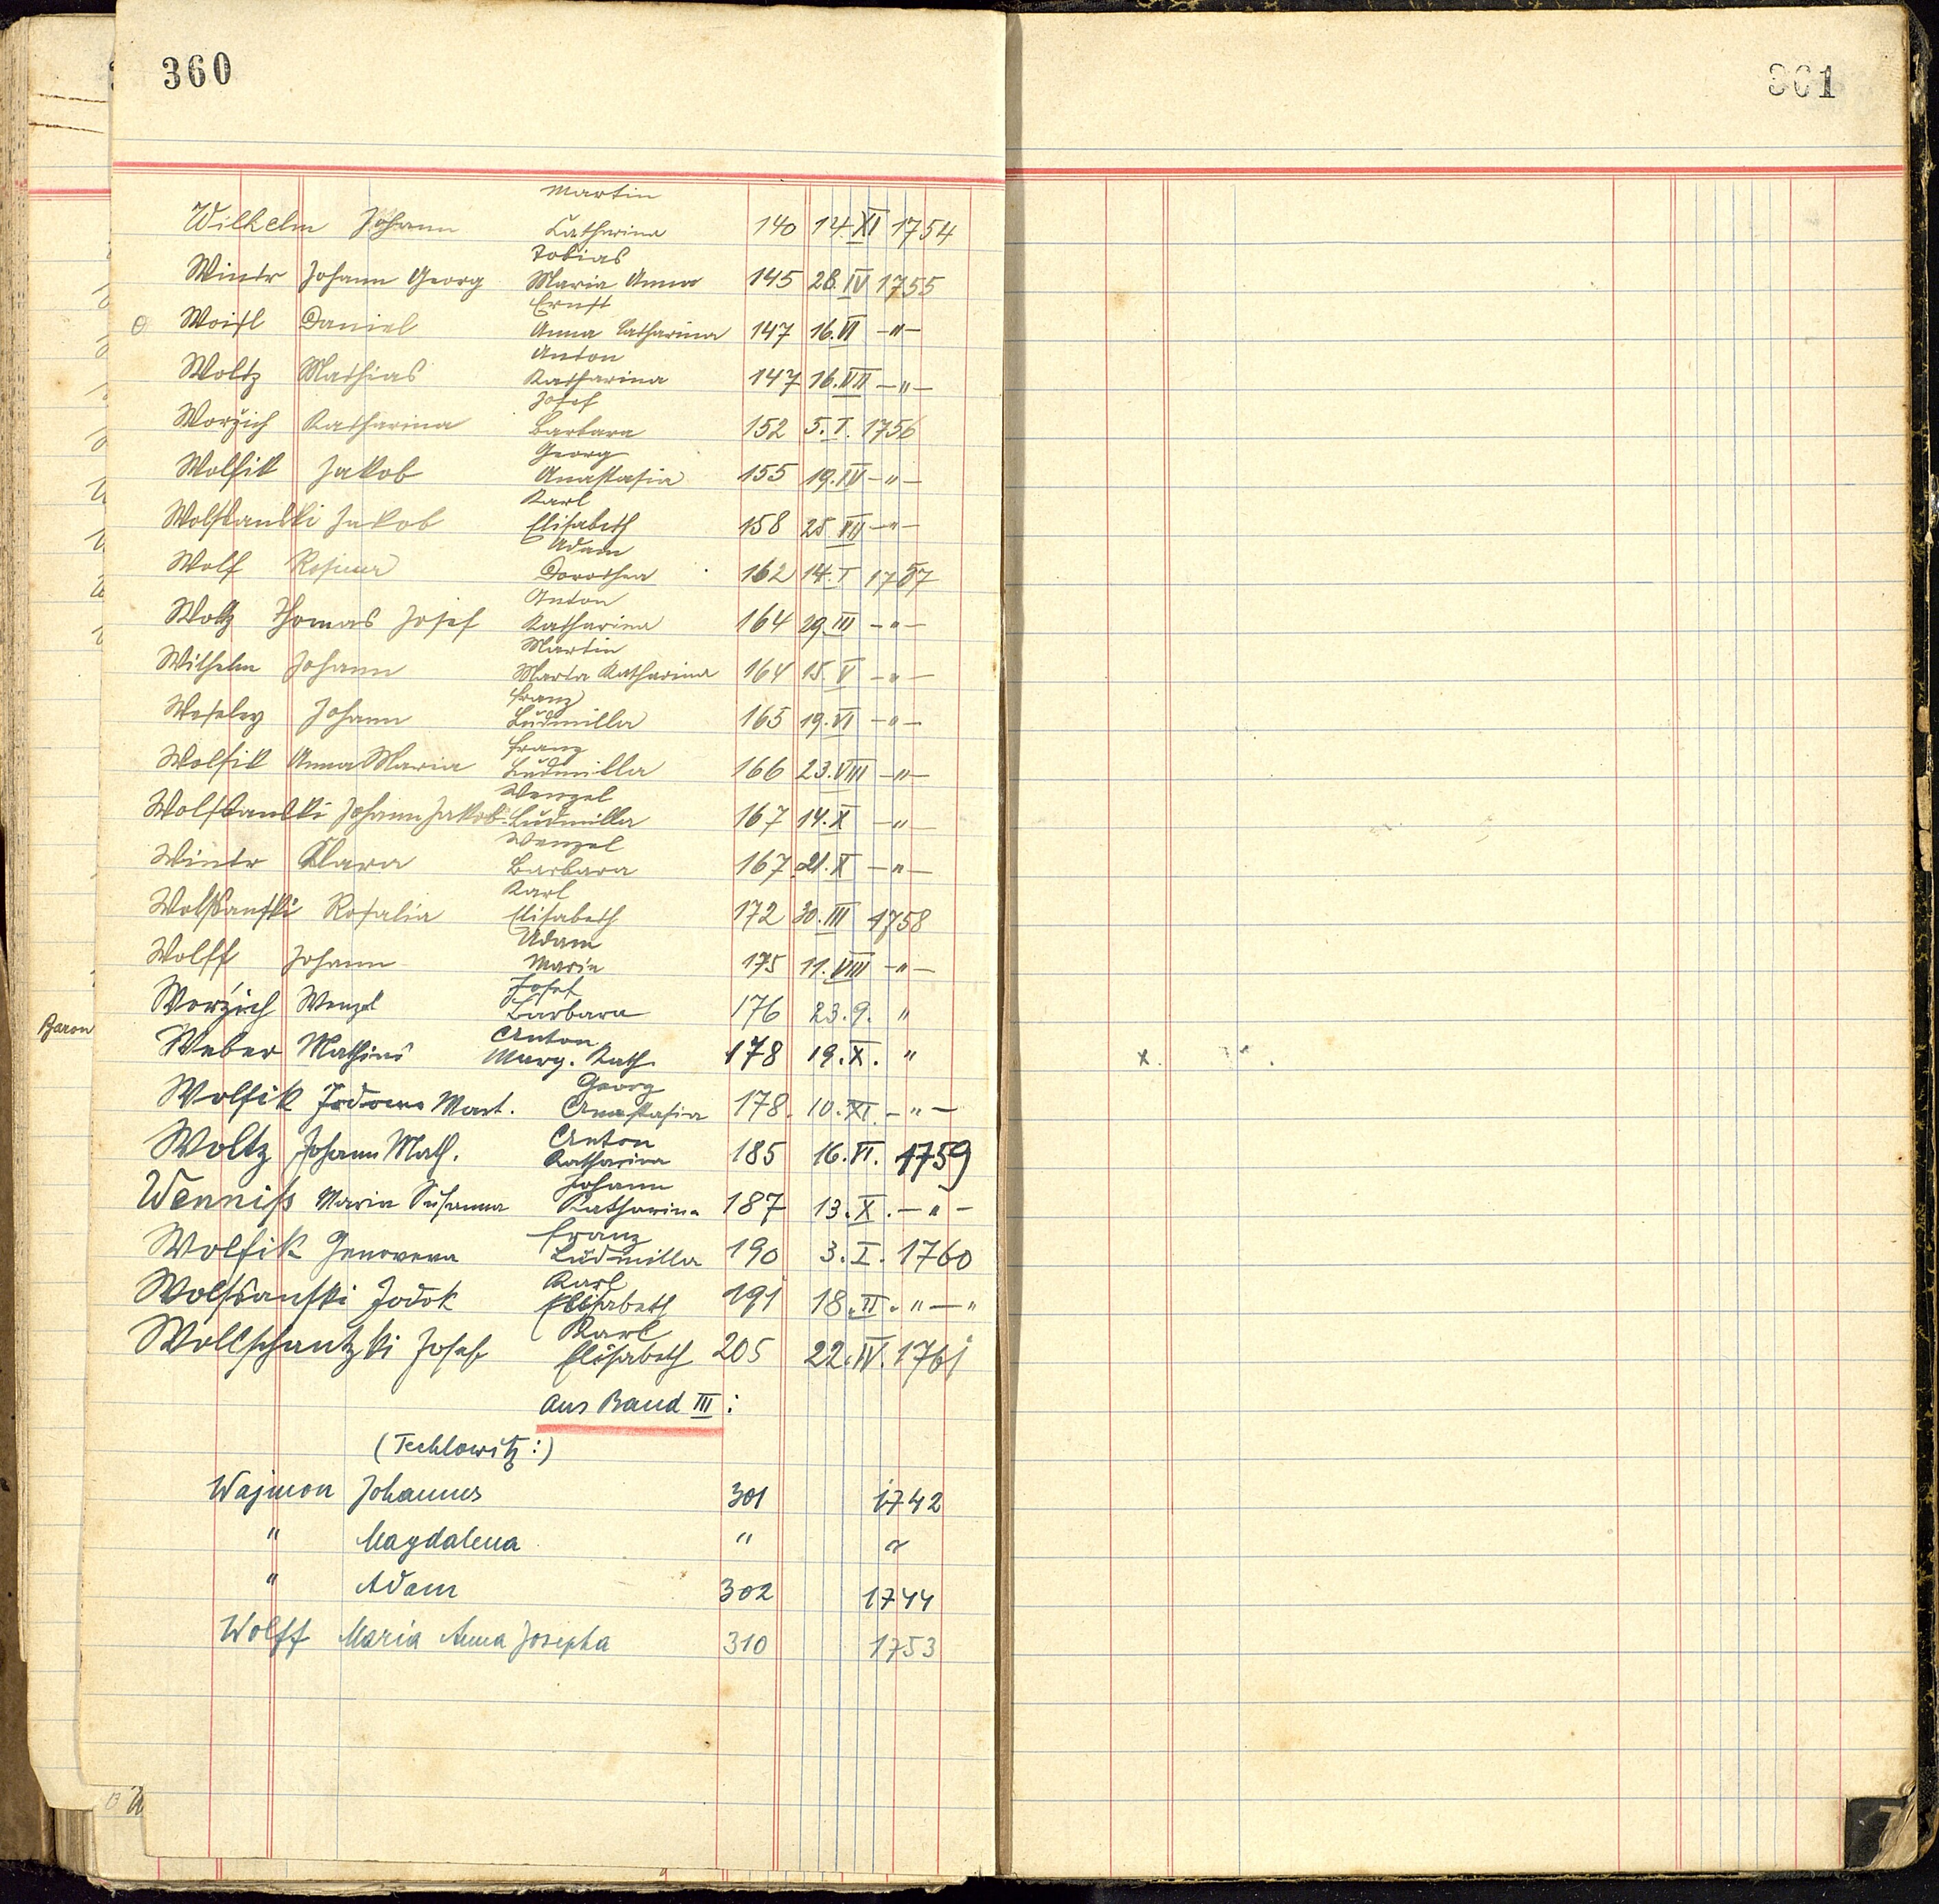 360
361
Martin
Wilhelm Johann Catharina 140 14.XI 1754
Tobias
Wintr Johann Georg Maria Anna 145 28.IV 1755
Ernst
Woisl Daniel Anna Catharina 147 16.VI -"-
Anton
Woltz Mathias Katharina 147 16.VII -"-
Josef
Woržich Katharina Barbara 152 5.I. 1756
Georg
Wolfik Jakob Anastasia 155 19.IV -"-
Karl
Jakob Elisabeth 158 25.VII -"-
Adam
Wolf Dorothea 162 14.I 1757
Anton
Woltz Thomas Josef Katharina 164 29.III -"-
Martin
Wilhelm Johann Maria Katharina 164 15.V -"-
Franz
Wesely Johann Ludmilla 165 19.VI -"-
Franz
Wolfik Anna Maria Ludmilla 166 23.VIII -"-
Wenzel
Johann Jakob Ludmilla 167 14.X -"-
Wenzel
Wintr Klara Barbara 167 21.X -"-
Karl
Wolfsanski Rosalia Elisabeth 172 30.III 1758
Adam
Wolff Johann Maria 175 11.VIII -"-
Josef
Woržich Wenzel Barbara 176 23.9. "
Baron
Anton
Weber Mathias Marg. Kath. 178 19.X. "
Georg
Wolfik Mart. Anastasia 178. 10.XI. -"-
Anton
Woltz Johann Math. Katharina 185 16.VI. 1759
Johann
Wenniß Maria Susanna Katharina 187 13.X. -"-
Franz
Wolfik Genovena Ludmilla 190 3.I. 1760
Karl
Wolfsanski Jodok Elisabeth 191 18.II. " — "
Karl
Wollschantzki Josef Elisabeth 205 22.IV. 1761
Aus Band III:
(Techlowitz:)
Wajmon Johannes 301 1742
" Magdalena " "
" Adam 302 1744
Wolff Maria Anna Josepha 310 1753
x